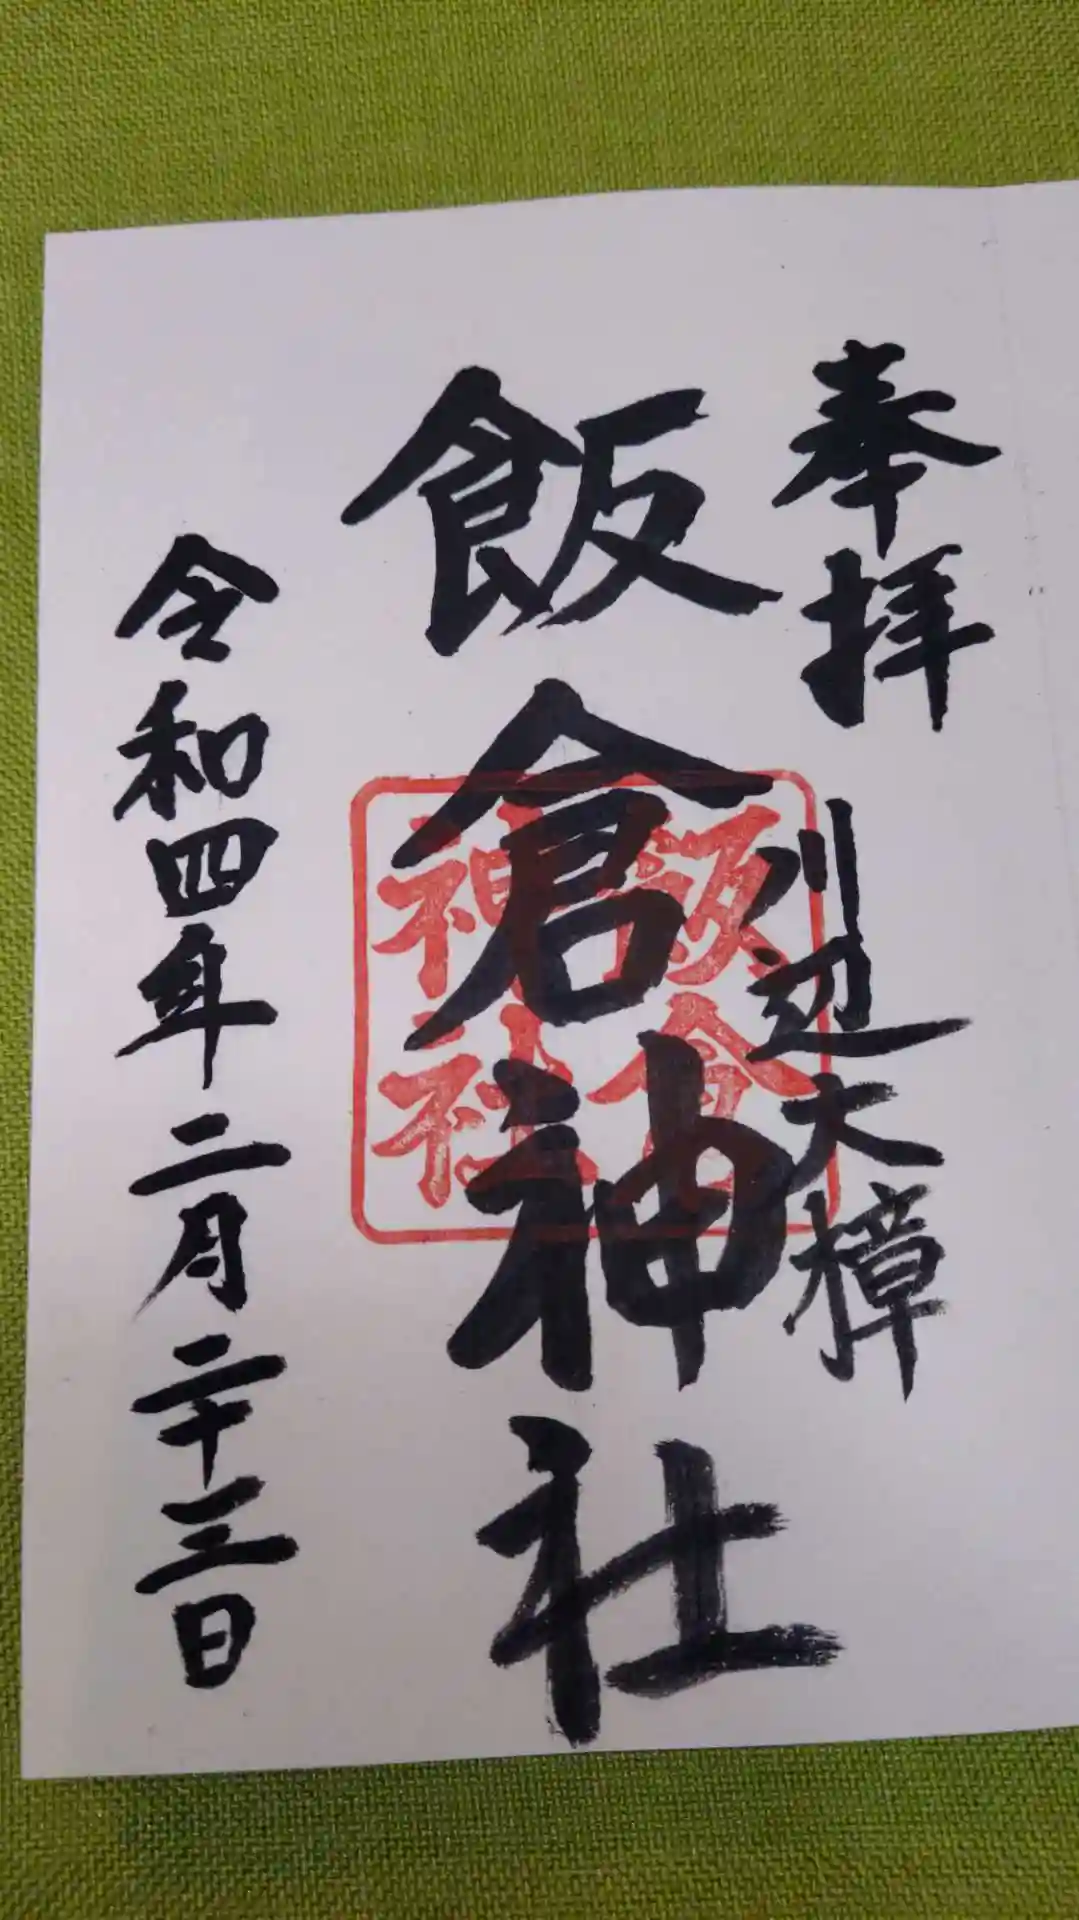 奉拝
川辺大樟
飯倉神社
飯倉
神社
令和四年二月二十三日